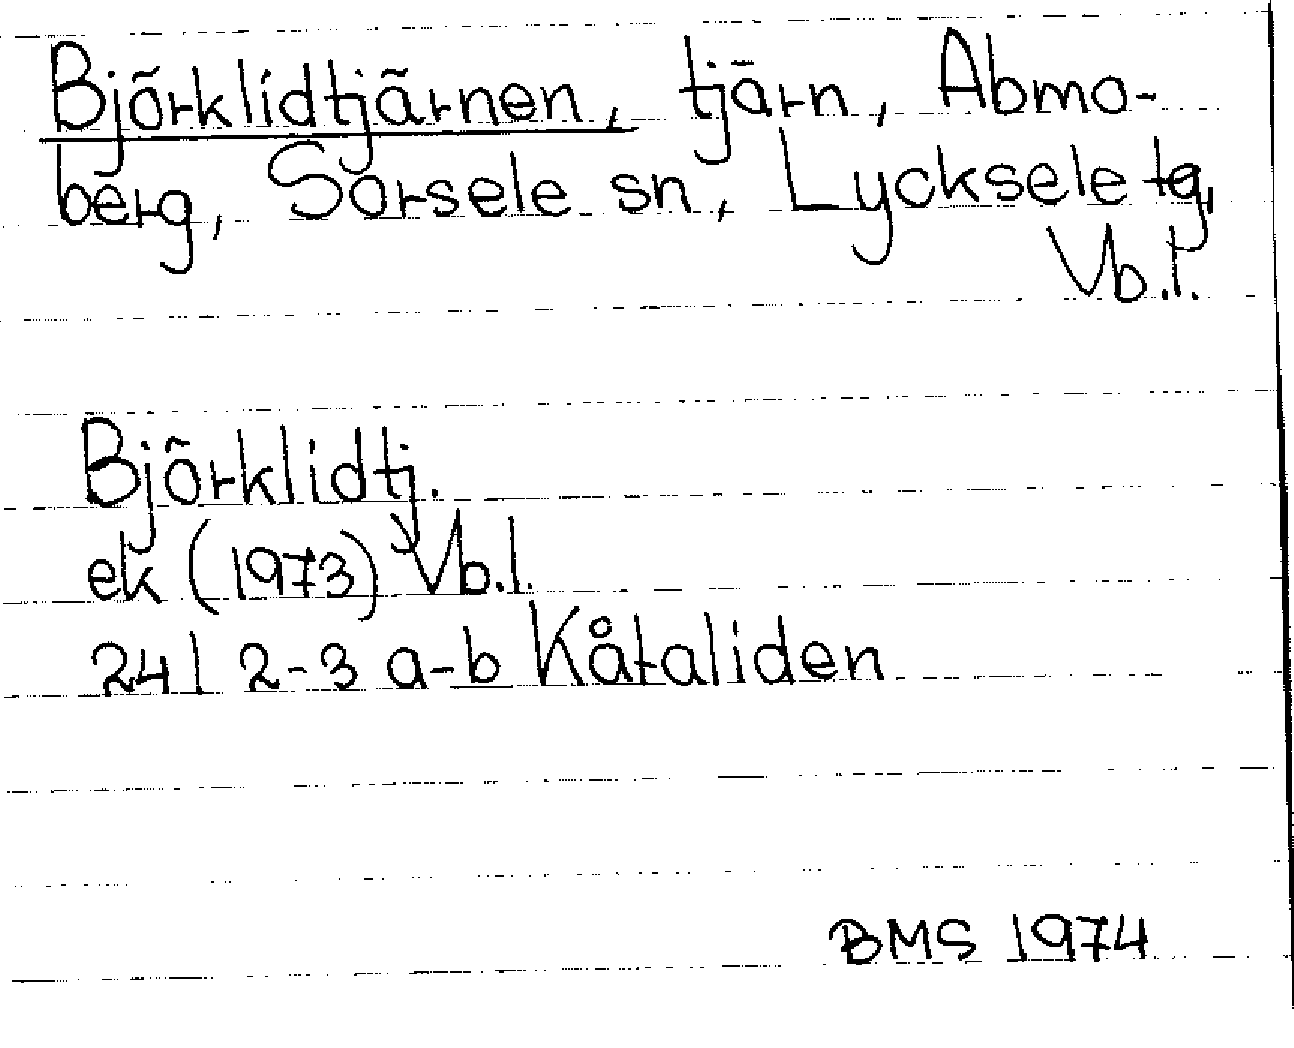 Björklidtjärnen, tjärn, Abmo-
berg, Sorsele sn, Lycksele tg,
Vb.l.
Björklidtj.
ek (1973) Vb.l.
24 I 2-3 a-b Kåtaliden
BMS 1974